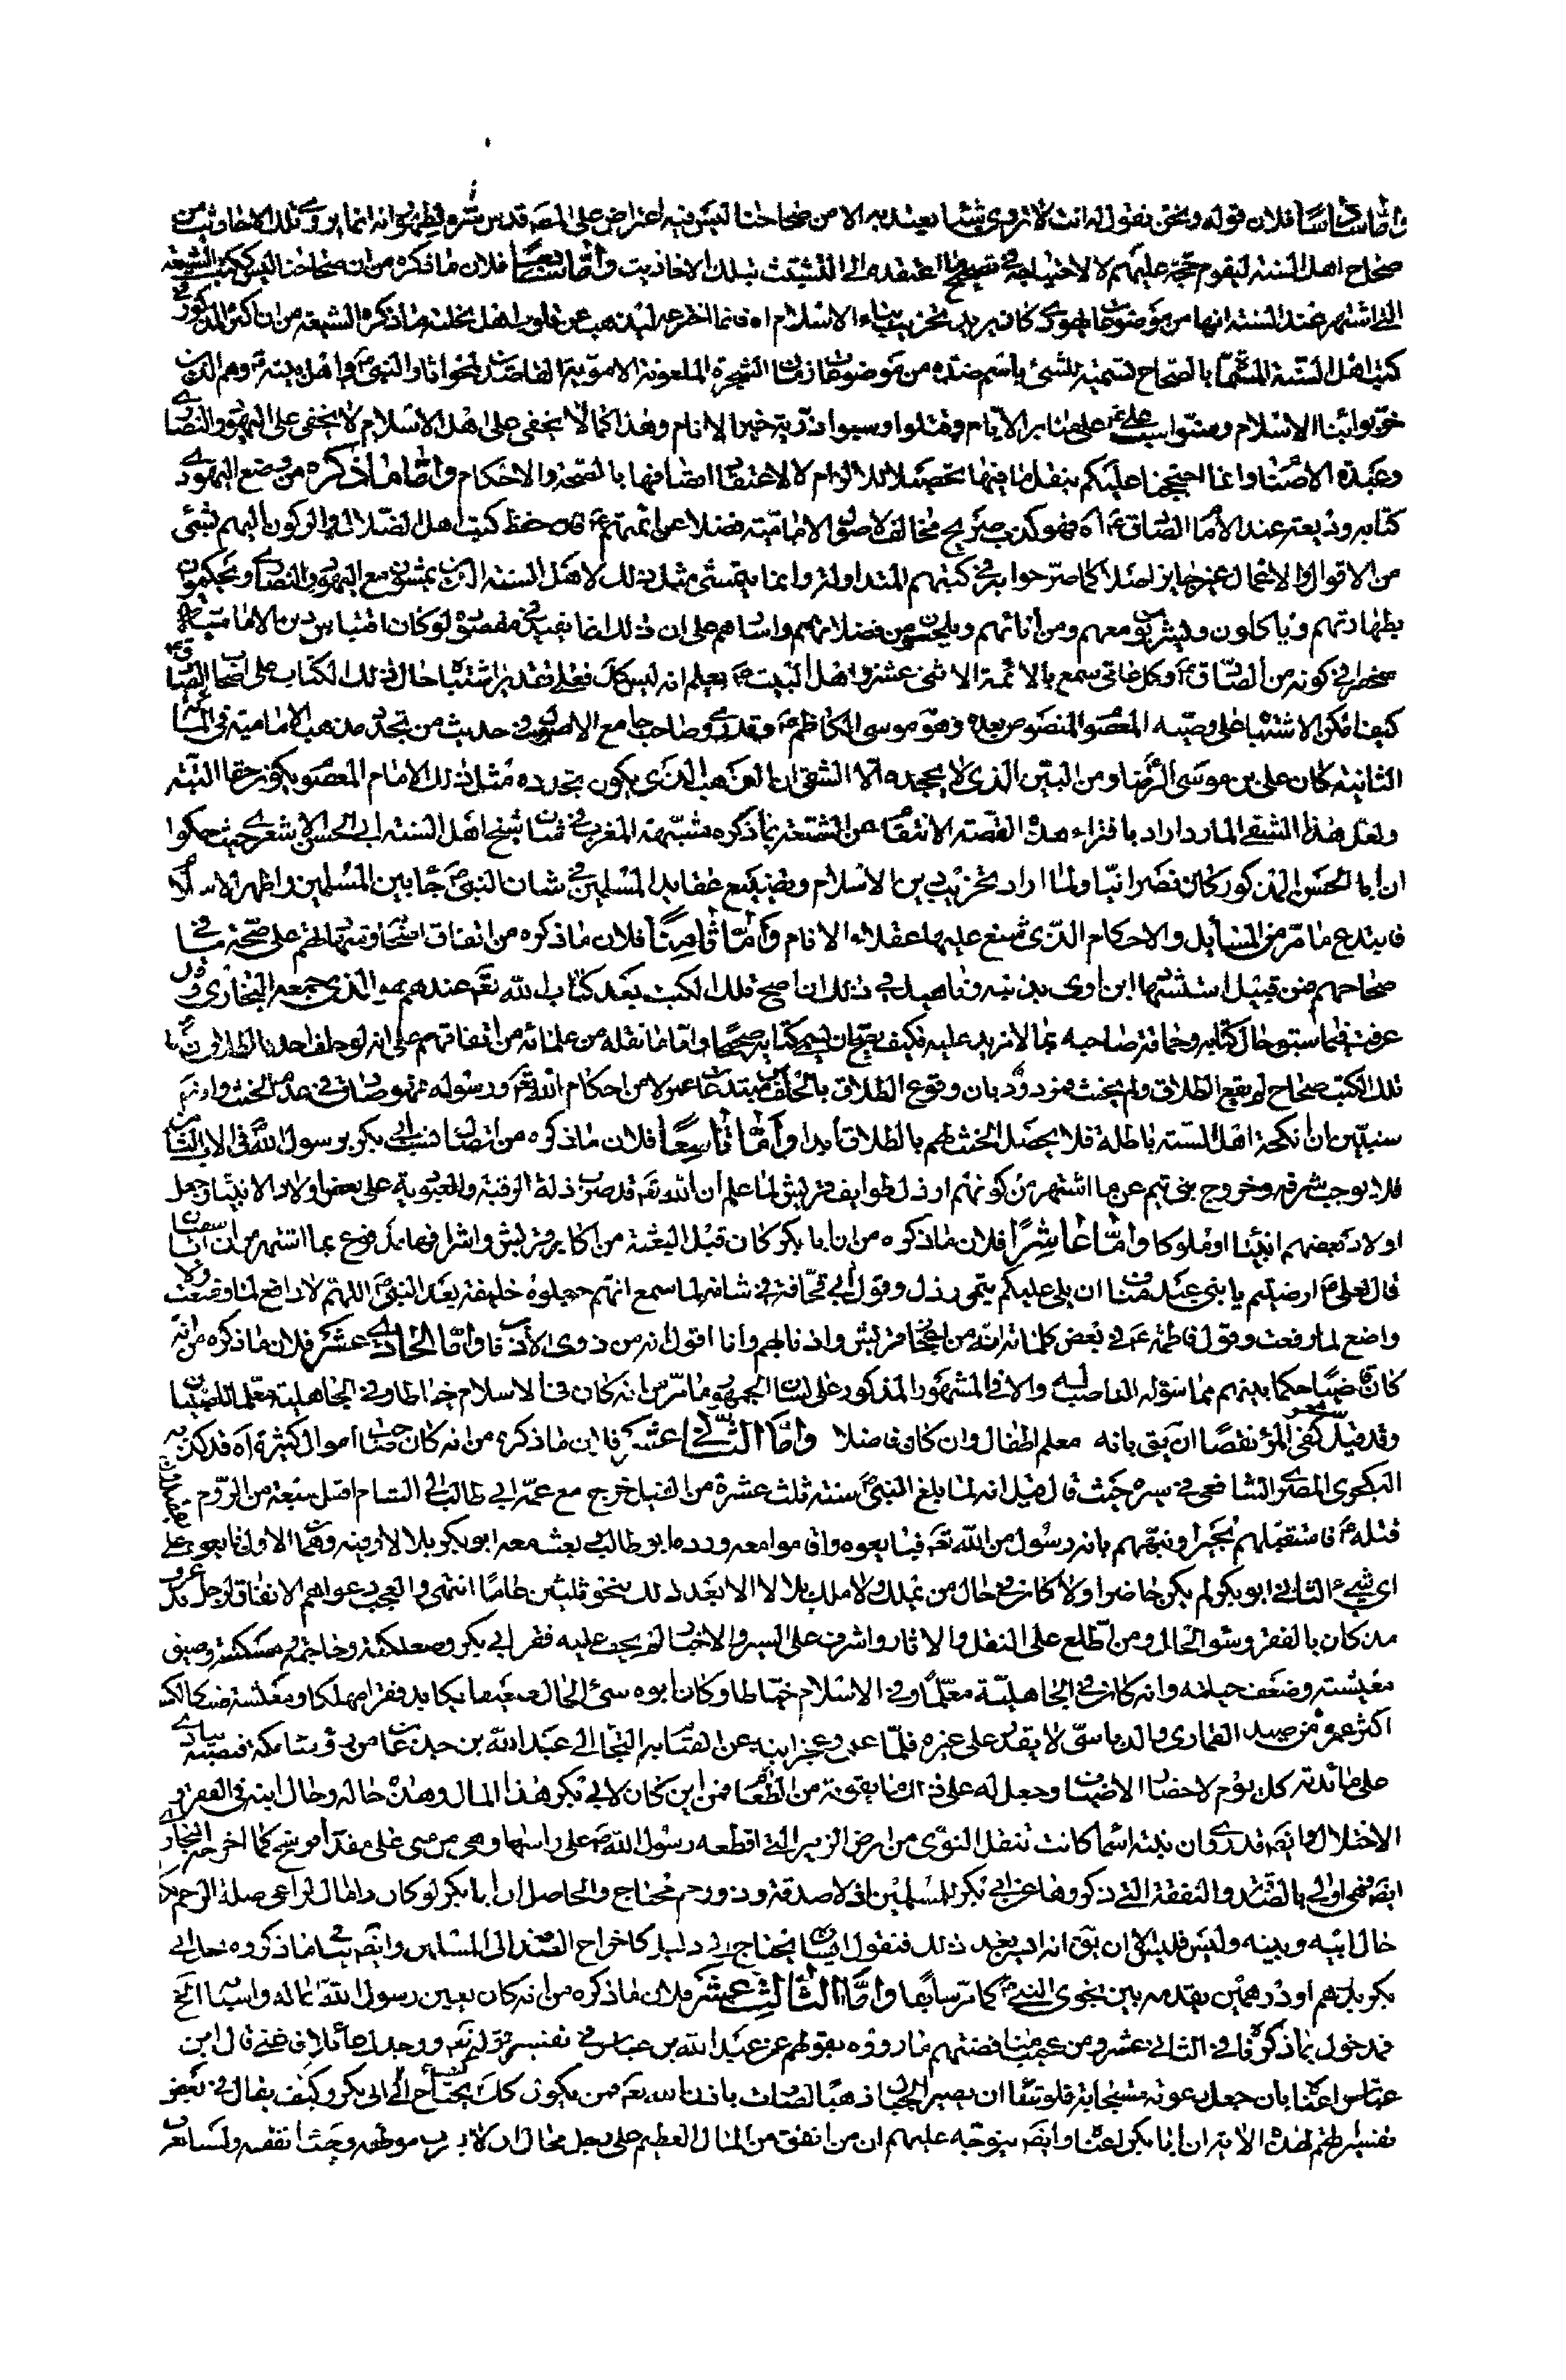 وأما سادسا فلان قوله ونحن نقول له انت لا تروى شيئا يعتد به الا من صحاحنا ليس فيه اعتراض على المصه قدس سره لظهور انه انما يروى تلك الاحاديث من
صحاح اهل السنة ليقوم حجة عليهم لا لاحتياجه في تصحيح ما اعتقده الى التشبث بتلك الاحاديث وأما سابعا فلان ما ذكره من ان صحاحنا ليس ككتب الشيعة
التي اشتهر عند السنة انها من موضوعات يهودي كان يريد تخريب بناء الاسلام اه فانما اخترعه ليذهب عن قلوب اهل نحلته ما ذكره الشيعة من ان اكثر المذكور في
كتب اهل السنة المسماة بالصحاح تسمية للشيء باسم ضده من موضوعات زمان الشجرة الملعونة الاموية القاصدين لمحو اثار النبي ص واهل بيته ع وهم الذين
خربوا بناء الاسلام وسنوا سب علي ع على منابر الايام وقتلوا وسبوا ذرية خير الانام وهذا كما لا يخفى على اهل الاسلام لا يخفى على اليهود والنصارى
وعبدة الاصنام وانما احتججنا عليكم بنقل ما فيها تحصيلا للالزام لا لاعتقاد اتصافها بالصحة والاحكام وأما ما ذكره من وضع اليهودي
كتابه وديعة عند الامام الصادق ع اه فهو كذب صريح مخالف لاصول الامامية فضلا عن ائمتهم ع فان حفظ كتب اهل الضلال والركون اليهم بشيء
من الاقوال والاعمال غير جايز اصلا كما صرحوا به في كتبهم المتداولة وانما يتمشى مثل ذلك لاهل السنة الذين يمشون مع اليهود والنصارى ويحكمون
بطهارتهم وياكلون ويشربون معهم ومن انائهم ويلحسون من فضلاتهم واسارهم على ان ذلك انما يفيد في مقصوده لو كان اقتباس دين الامامية
منحصرا في كونه من الصادق ع وكل عاقل سمع بالائمة الاثنى عشر واهل البيت ع يعلم انه ليس كل فعلى تقدير اشتباه حال ذلك الكتاب على اصحاب الصادق ع
كيف يمكن الاشتباه على وصيه المعصوم المنصوص بعده وهو موسى الكاظم ع وقد روى صاحب جامع الاصول في حديث من تجدد مذهب الامامية في المائة
الثانية كان علي بن موسى الرضا ومن البين الذي لا يجحده الا الشقي ان المذهب الذي يكون تجدده مثل ذلك الامام المعصوم يكون حقا البتة
ولعل هذا الشقي المارد اراد بافتراء هذه القصة الانتقام عن الشيعة بما ذكره متنبهة المغرب في شان شيخ اهل السنة ابي الحسن الاشعري حيث حكموا
ان ابا الحسن المذكور كان نصرانيا ولما اراد تخريب دين الاسلام وتضييع عقايد المسلمين في شان النبي ص جاء بين المسلمين واظهر الاسلام
فابتدع ما مر من المسائل والاحكام الذي شنع عليها عقلاء الانام وأما ثامنا فلان ما ذكره من اتفاق اصحابه وائمتهم على صحة ما في
صحاحهم فمن قبيل استشهاد ابن اوى بذنبه وناهيك في ذلك ان اصح تلك الكتب بعد كتاب الله تعه عندهم هو الذي جمعه البخاري وقد
عرفت فيما سبق حال كتابه وحماقة صاحبه بما لا مزيد عليه فكيف يصح ان يسمى كتابه صحيحا وأما ما نقله من علمائه من اتفاقهم على انه لو حلف احد بالطلاق بان ما في
تلك الكتب صحاح لم يقع الطلاق ولم يحنث فمردود بان وقوع الطلاق بالحلف من مبتدعات عمر لا من احكام الله تعه ورسوله فهو صادق في عدم الحنث واذ قد
سنبين ان انكحة اهل السنة باطلة فلا يحصل الحنث لهم بالطلاق ابدا وأما تاسعا فلان ما ذكره من اتصال نسب ابي بكر برسول الله ص في الاب الثامن
فلا يوجب شرفه وخروج بني تيم عن ما اشتهر من كونهم ارذل طوايف قريش لما علم ان الله تعه قد ضرب ذلة الرقية والعبودية على بعض اولاد الانبياء وجعل
اولاد بعضهم انبياء او ملوكا وأما عاشرا فلان ما ذكره من ان ابا بكر كان قبل البعثة من اكابر قريش واشرافها مدفوع بما اشتهر من ان ابا سفيان
قال لعلي ع ارضيتم يا بني عبد مناف ان يلي عليكم تيمي رذل وقول ابي قحافة في شانه لما سمع انهم جعلوه خليفة بعد النبي ص اللهم لا رافع لما وضعت ولا
واضع لما رفعت وقول فاطمة ع في بعض كلماتها انه من اعجاز قريش واذنابها وانا اقول انه من ذوي الاذناب وأما الحادي عشر فلان ما ذكره من انه
كان قاضيا حكما بينهم مما سوله الناصب والا فالمشهور المذكور على لسان الجمهور ما مر من انه كان في الاسلام خياطا وفي الجاهلية معلما للصبيان
وقد قيل شعر كفى المرء نقصا ان يقال بانه معلم اطفال وان كان فاضلا وأما الثاني عشر فلان ما ذكره من انه كان صاحب اموال كثيرة اه قد كذبه
البكري المصري الشافعي في سيره حيث قال قيل انه لما بلغ النبي ص سنة ثلث عشرة من الفيل خرج مع عمه ابي طالب الى الشام اقبل سبعة من الروم يقصدون
قتله ع فاستقبلهم بحيرا ونبههم بانه رسول من الله تعه فبايعوه واقاموا معه ورده ابو طالب بعث معه ابو بكر بلالا وفيه وهما الاول بايعوه على
اي شيء الثاني ابو بكر لم يكن حاضرا ولا كان في حال من يملك ولا ملك بلالا الا بعد ذلك بنحو ثلثين عاما انتهى والعجب دعواهم الانفاق لرجل قد عرف
مذ كان بالفقر وسوء الحال ومن اطلع على النقل والاثار واشرف على السير والاخبار لم يخف عليه فقر ابي بكر وصعلكته وحاجته ومسكنته وضيق
معيشته وضعف حيلته وانه كان في الجاهلية معلما وفي الاسلام خياطا وكان ابوه سيئ الحال ضعيفا يكابد فقرا مهلكا ومعيشة ضنكا لكسبه
اكثر عمره من صيد القماري والدباسي لا يقدر على غيره فلما عمي وعجز ابنه عن القيام به التجا الى عبد الله بن جدعان من رؤساء مكة فنصبه ينادي
على مائدته كل يوم لاحضار الاضياف وجعل له على ذلك ما يقوته من الطعام فمن اين كان لابي بكر هذا المال وهذه حاله وحال ابيه في الفقر و
الاختلال وايضه قد روى ان بنته اسماء كانت تنقل النوى من ارض الزبير التي اقطعه رسول الله ص على راسها وهي من مني على مقدار فرسخ كما اخرجه البخاري
ايضه فهي اولى بالصدقة والنفقة التي ذكروها عن ابي بكر للمسلمين اذ لا صدقة وذو رحم محتاج والحاصل ان ابا بكر لو كان ذا مال لراعى صلة الرحم
حال ابيه وبنيه وليس فليس لاحد ان يقال انه لم يرد ذلك فنقول اثبات يحتاج الى دليل كاخراج الصدقة الى المسلمين وايضه ينافي ما ذكروه بخل ابي
بكر بدرهم او درهمين يقدمه بين نجوى النبي ص كما مر سابقا وأما الثالث عشر فلان ما ذكره من انه كان يعين رسول الله ص بماله واسبابه الخ
فمدخول بما ذكرناه في الثاني عشر ومن عجيب مناقضتهم ما رووه بقولهم عن عبد الله بن عباس في تفسير قوله تعه ووجدك عائلا فاغنى قال ابن
عباس اغناه بان جعل دعوته مستجابة فلو شاء ان يصير الجبال ذهبا لصارت باذن الله تعه فمن يكون كك يحتاج الى مال ابي بكر وكيف يقال في بعض
تفسيراتهم لهذه الاية ان ابا بكر اغناه وايضه يتوجه عليهم ان من انفق من المال العظيم على رجل محال ان لا يعرف موضعه وحيث انفقه ولسنا نعرف